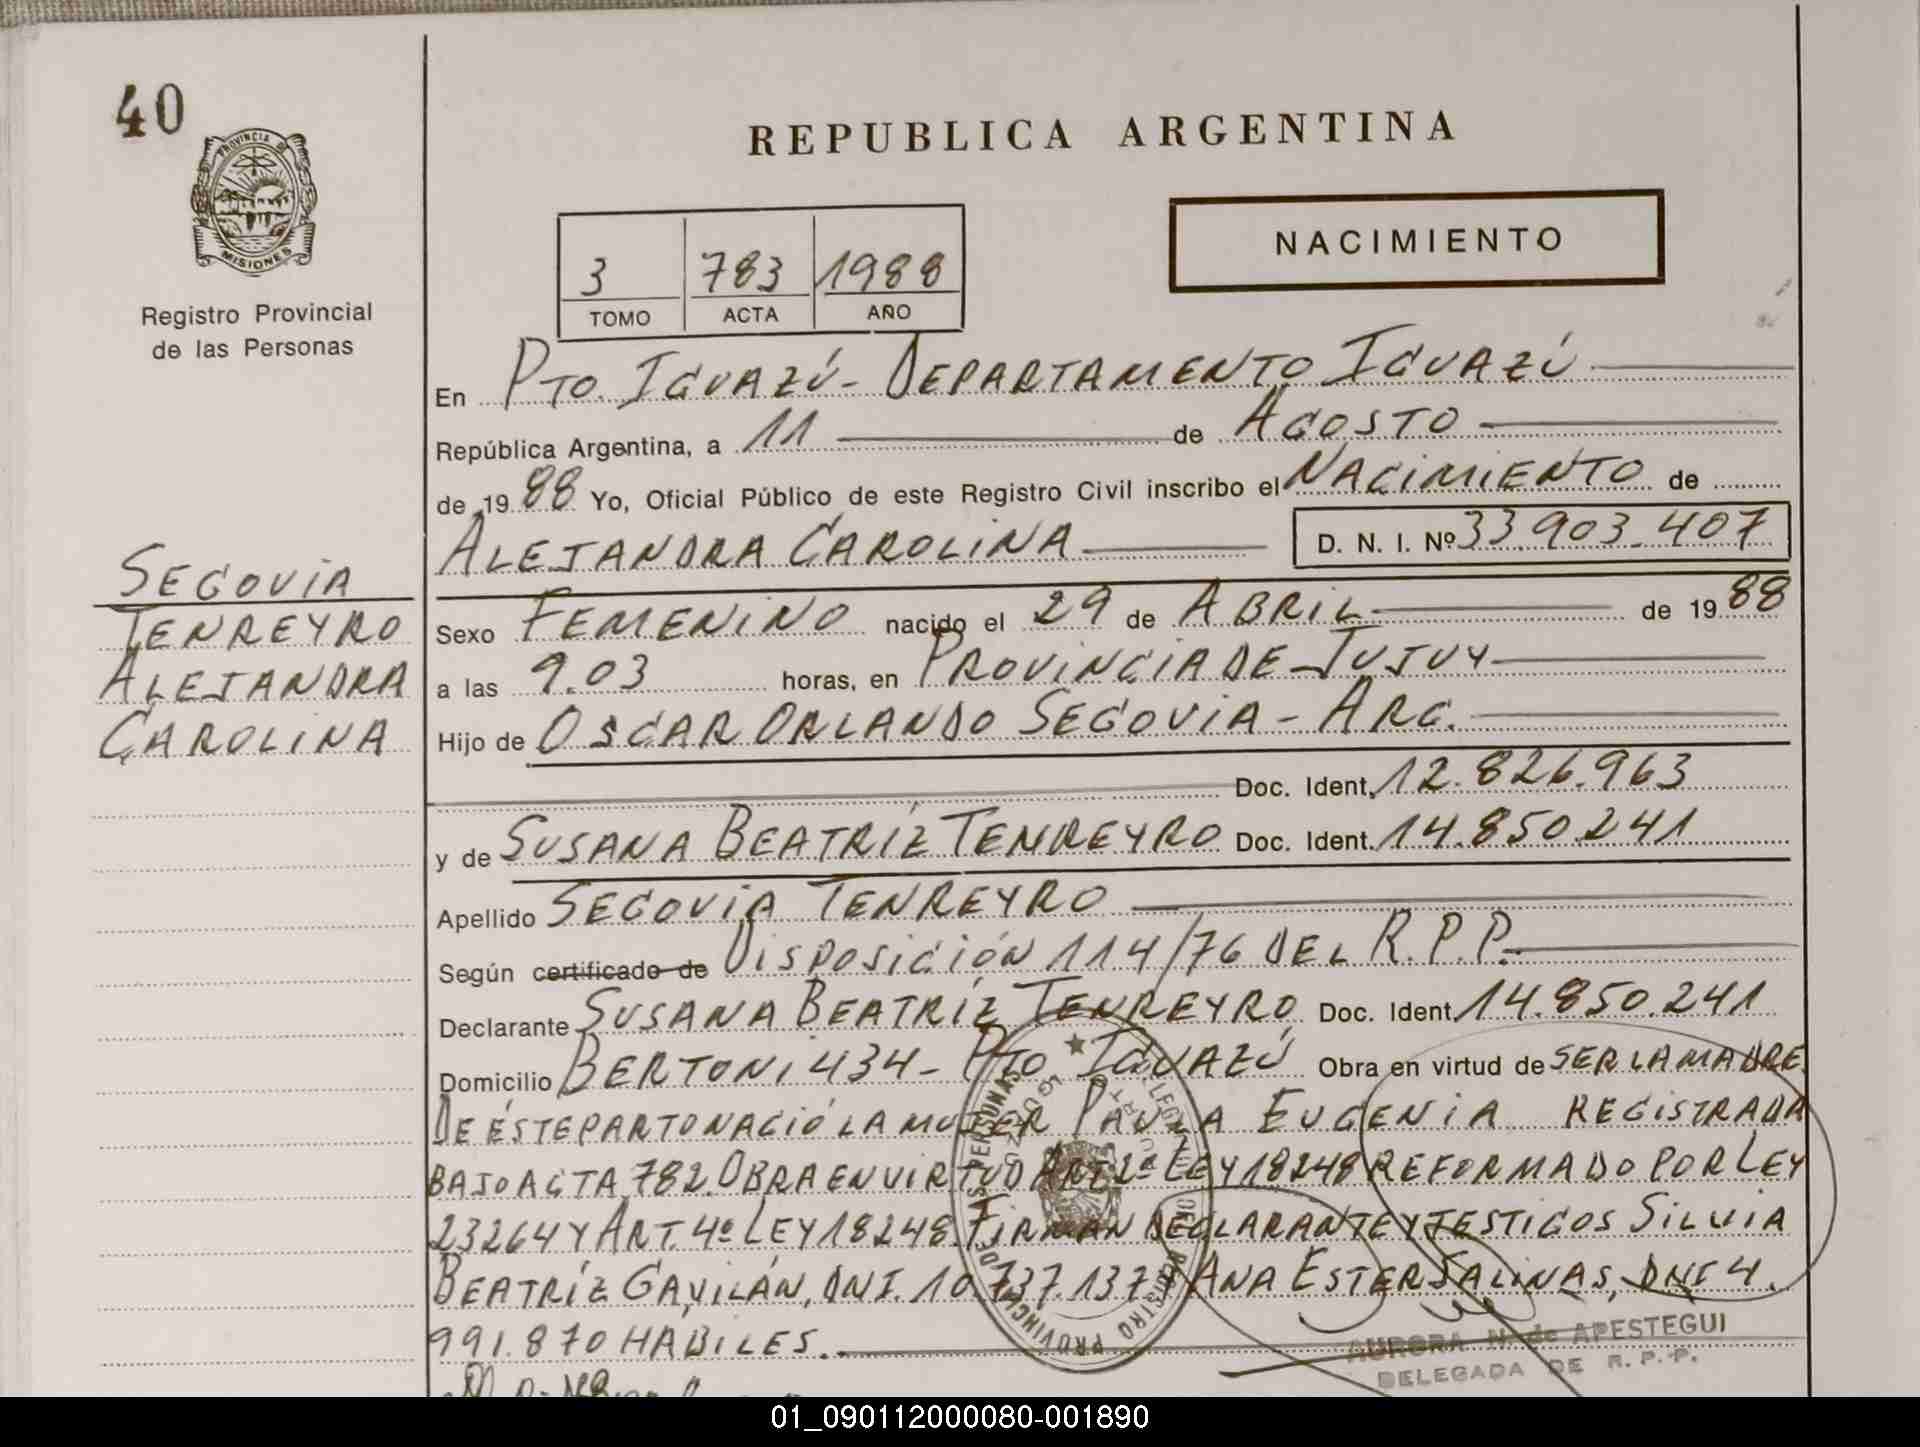 40
PROVINCIA DE
MISIONES
Registro Provincial
de las Personas
REPUBLICA ARGENTINA
NACIMIENTO
3 783 1988
TOMO ACTA AÑO
En PTO. IGUAZÚ - DEPARTAMENTO IGUAZÚ
República Argentina, a 11 de AGOSTO
de 1988 Yo, Oficial Público de este Registro Civil inscribo el NACIMIENTO de
ALEJANDRA CAROLINA D. N. I. Nº 33.903.407
SEGOVIA
TENREYRO
ALEJANDRA
CAROLINA
Sexo FEMENINO nacido el 29 de ABRIL de 1988
a las 9.03 horas, en PROVINCIA DE JUJUY
Hijo de OSCAR ORLANDO SEGOVIA - ARG.
Doc. Ident. 12.826.963
y de SUSANA BEATRÍZ TENREYRO Doc. Ident. 14.850.241
Apellido SEGOVIA TENREYRO
Según certificado de DISPOSICIÓN 114/76 DEL R.P.P.
Declarante SUSANA BEATRÍZ TENREYRO Doc. Ident. 14.850.241
Domicilio BERTONI 434 - PTO IGUAZÚ Obra en virtud de SER LA MADRE.
DE ÉSTE PARTO NACIÓ LA MUJER PAULA EUGENIA REGISTRADA
BAJO ACTA 782. OBRA EN VIRTUD ART 2º LEY 18248 REFORMADO POR LEY
23264 Y ART. 4º LEY 18248. FIRMAN DECLARANTE Y TESTIGOS SILVIA
BEATRÍZ GAVILÁN, DNI. 10.737.137 Y ANA ESTER SALINAS, DNI 4.
991.870 HABILES.
REGISTRO PROVINCIAL DE LAS PERSONAS
AURORA N. de APESTEGUI
DELEGADA DE R. P. P.
01_090112000080-001890